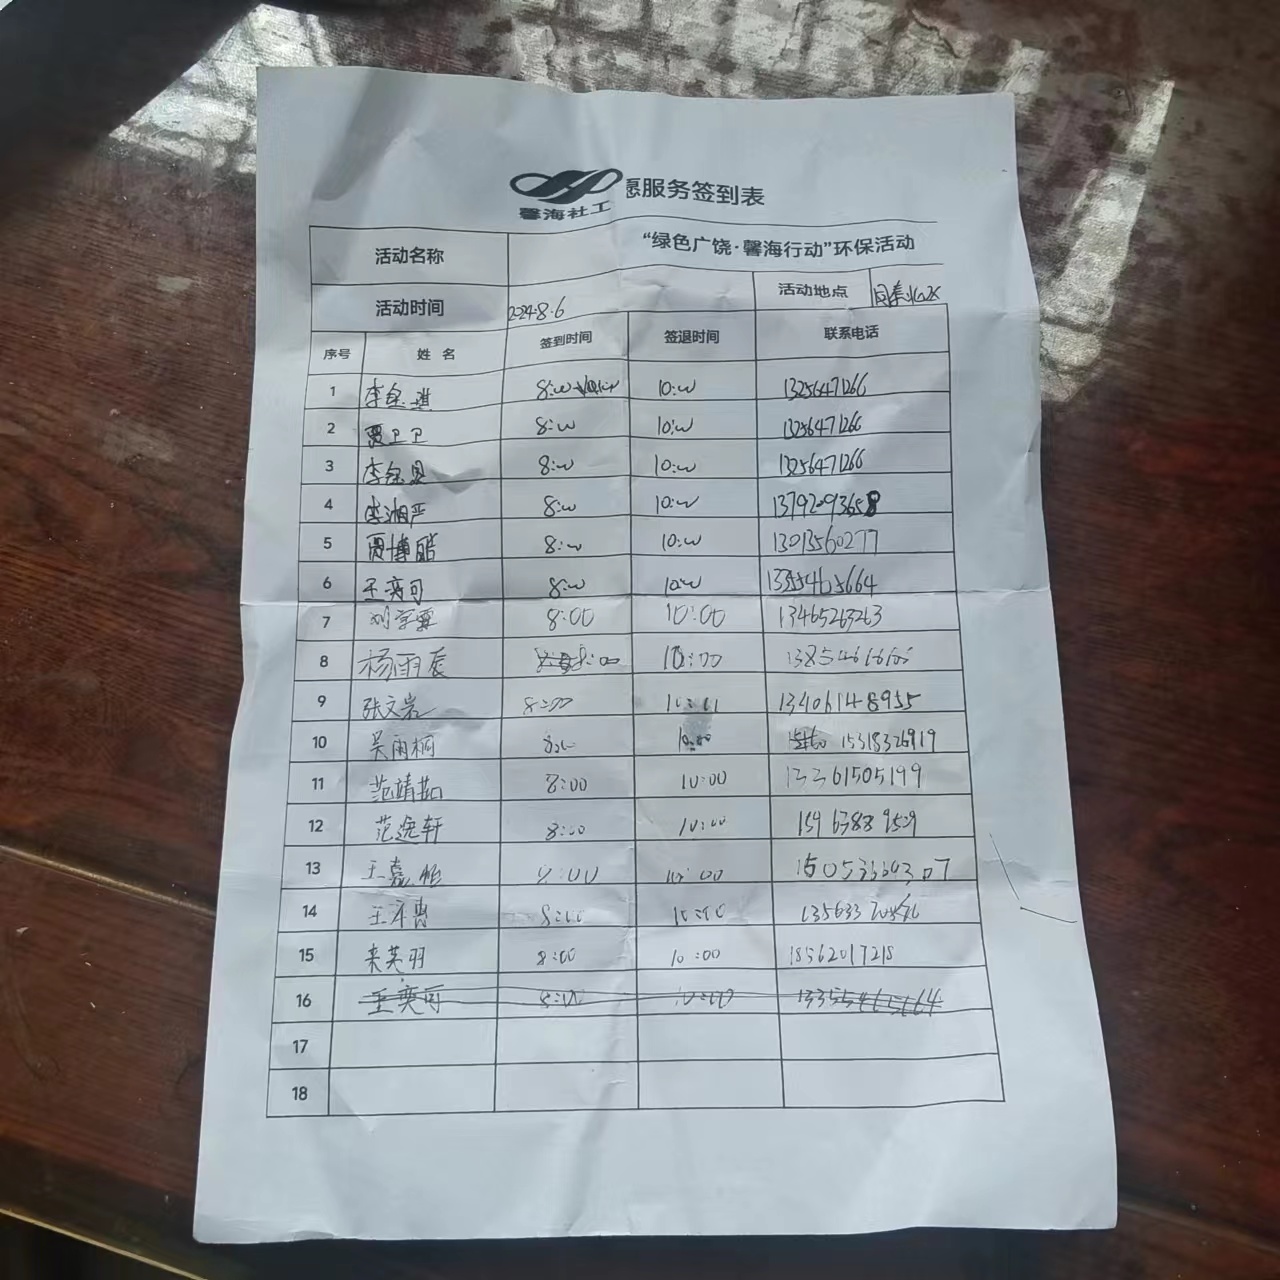 馨海社工
愿服务签到表
活动名称 “绿色广饶·馨海行动”环保活动
活动时间 2024.8.6 活动地点
序号 姓名 签到时间 签退时间 联系电话
1 李金琪 8:00 10:00 13256471266
2 贾卫卫 8:00 10:00 13256471266
3 李金 8:00 10:00 13256471266
4 李湘严 8:00 10:00 13792093658
5 贾博皓 8:00 10:00 13013560277
6 王奕可 8:00 10:00 13355465664
7 刘宇霏 8:00 10:00 13465263263
8 杨雨辰 8:00 10:00
9 张文岩 8:00 10:01 13406148955
10 吴雨桐 8:00 10:00 15318326919
11 范靖茹 8:00 10:00 13361505199
12 范逸轩 8:00 10:00
13 王嘉怡 8:00 10:00
14 王 8:00 10:00
15 英羽 8:00 10:00 18562017218
16 王奕可 8:00 10:00 13355465664
17
18